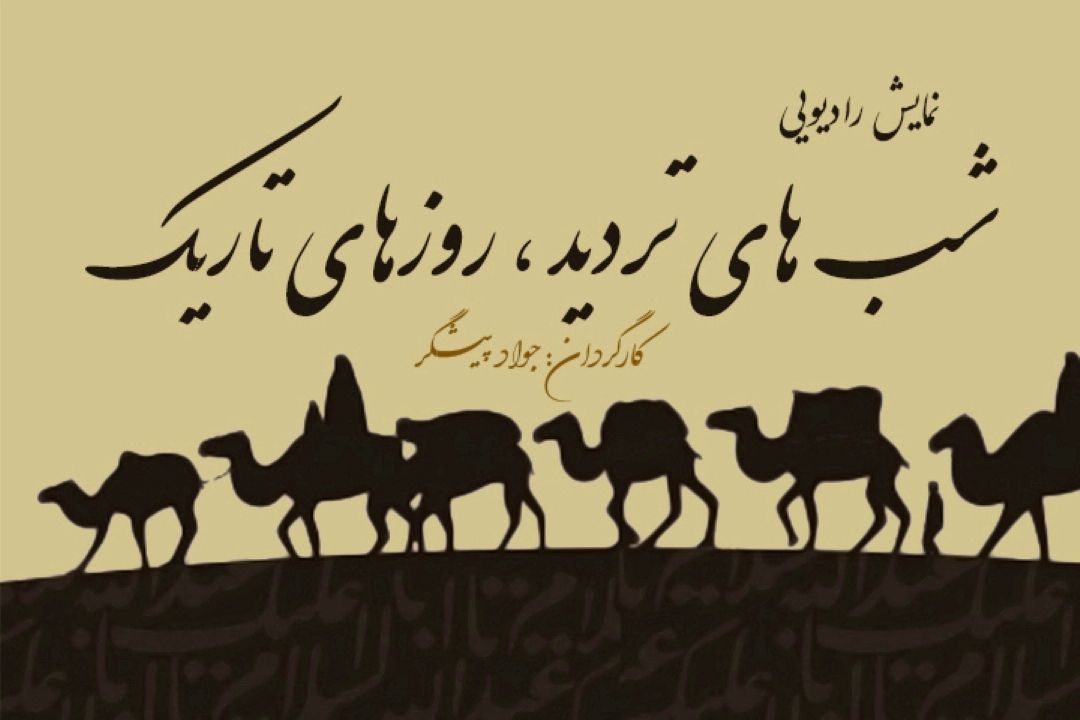 نمایش رادیویی
شب های تردید ، روزهای تاریک
کارگردان: جواد پیشگر